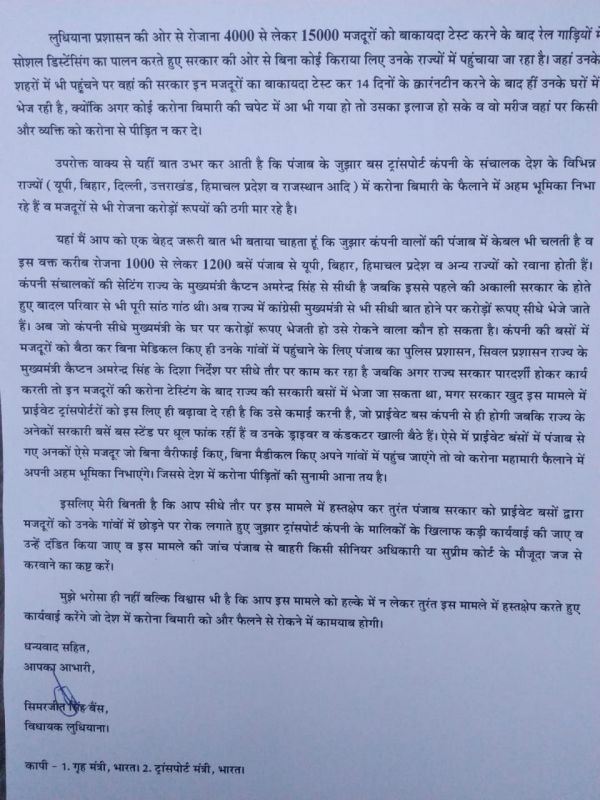 लुधियाना प्रशासन की ओर से रोजाना 4000 से लेकर 15000 मजदूरों को बाकायदा टेस्ट करने के बाद रेल गाड़ियों में
सोशल डिस्टेंसिंग का पालन करते हुए सरकार की ओर से बिना कोई किराया लिए उनके राज्यों में पहुंचाया जा रहा है। जहां उनके
शहरों में भी पहुंचने पर वहां की सरकार इन मजदूरों का बाकायदा टेस्ट कर 14 दिनों के क्वारंनटीन करने के बाद हीं उनके घरों में
भेज रही है, क्योंकि अगर कोई करोना बिमारी की चपेट में आ भी गया हो तो उसका इलाज हो सके व वो मरीज वहां पर किसी
और व्यक्ति को करोना से पीड़ित न कर दे।
उपरोक्त वाक्य से यहीं बात उभर कर आती है कि पंजाब के जुझार बस ट्रांसपोर्ट कंपनी के संचालक देश के विभिन्न
राज्यों ( यूपी, बिहार, दिल्ली, उत्तराखंड, हिमाचल प्रदेश व राजस्थान आदि ) में करोना बिमारी के फैलाने में अहम भूमिका निभा
रहे हैं व मजदूरों से भी रोजना करोड़ों रूपयों की ठगी मार रहे है।
यहां मैं आप को एक बेहद जरूरी बात भी बताया चाहता हूं कि जुझार कंपनी वालों की पंजाब में केबल भी चलती है व
इस वक्त करीब रोजना 1000 से लेकर 1200 बसें पंजाब से यूपी, बिहार, हिमाचल प्रदेश व अन्य राज्यों को रवाना होती हैं।
कंपनी संचालकों की सेटिंग राज्य के मुख्यमंत्री कैप्टन अमरेन्द्र सिंह से सीधी है जबकि इससे पहले की अकाली सरकार के होते
हुए बादल परिवार से भी पूरी सांठ गांठ थी। अब राज्य में कांग्रेसी मुख्यमंत्री से भी सीधी बात होने पर करोड़ों रूपए सीधे भेजे जाते
हैं। अब जो कंपनी सीधे मुख्यमंत्री के घर पर करोड़ों रूपए भेजती हो उसे रोकने वाला कौन हो सकता है। कंपनी की बसों में
मजदूरों को बैठा कर बिना मेडिकल किए ही उनके गांवों में पहुंचाने के लिए पंजाब का पुलिस प्रशासन, सिवल प्रशासन राज्य के
मुख्यमंत्री कैप्टन अमरेन्द्र सिंह के दिशा निर्देश पर सीधे तौर पर काम कर रहा है जबकि अगर राज्य सरकार पारदर्शी होकर कार्य
करती तो इन मजदूरों की करोना टेस्टिंग के बाद राज्य की सरकारी बसों में भेजा जा सकता था, मगर सरकार खुद इस मामले में
प्राईवेट ट्रांसपोर्टरों को इस लिए ही बढ़ावा दे रही है कि उसे कमाई करनी है, जो प्राईवेट बस कंपनी से ही होगी जबकि राज्य के
अनेकों सरकारी बसें बस स्टेंड पर धूल फांक रहीं हैं व उनके ड्राइवर व कंडकटर खाली बैठे हैं। ऐसे में प्राईवेट बंसों में पंजाब से
गए अनकों ऐसे मजदूर जो बिना वैरीफाई किए, बिना मैडीकल किए अपने गांवों में पहुंच जाएंगे तो वो करोना महामारी फैलाने में
अपनी अहम भूमिका निभाएंगे। जिससे देश में करोना पीड़ितों की सुनामी आना तय है।
इसलिए मेरी बिनती है कि आप सीधे तौर पर इस मामले में हस्तक्षेप कर तुरंत पंजाब सरकार को प्राईवेट बसों द्वारा
मजदूरों को उनके गांवों में छोड़ने पर रोक लगाते हुए जुझार ट्रांसपोर्ट कंपनी के मालिकों के खिलाफ कड़ी कार्यवाई की जाए व
उन्हें दंडित किया जाए व इस मामले की जांच पंजाब से बाहरी किसी सीनियर अधिकारी या सुप्रीम कोर्ट के मौजूदा जज से
करवाने का कष्ट करें।
मुझे भरोसा ही नहीं बल्कि विश्वास भी है कि आप इस मामले को हल्के में न लेकर तुरंत इस मामले में हस्तक्षेप करते हुए
कार्यवाई करेंगे जो देश में करोना बिमारी को और फैलने से रोकने में कामयाब होगी।
धन्यवाद सहित,
आपका आभारी,
सिमरजीत सिंह बैंस,
विधायक लुधियाना।
कापी - 1. गृह मंत्री, भारत। 2. ट्रांसपोर्ट मंत्री, भारत।